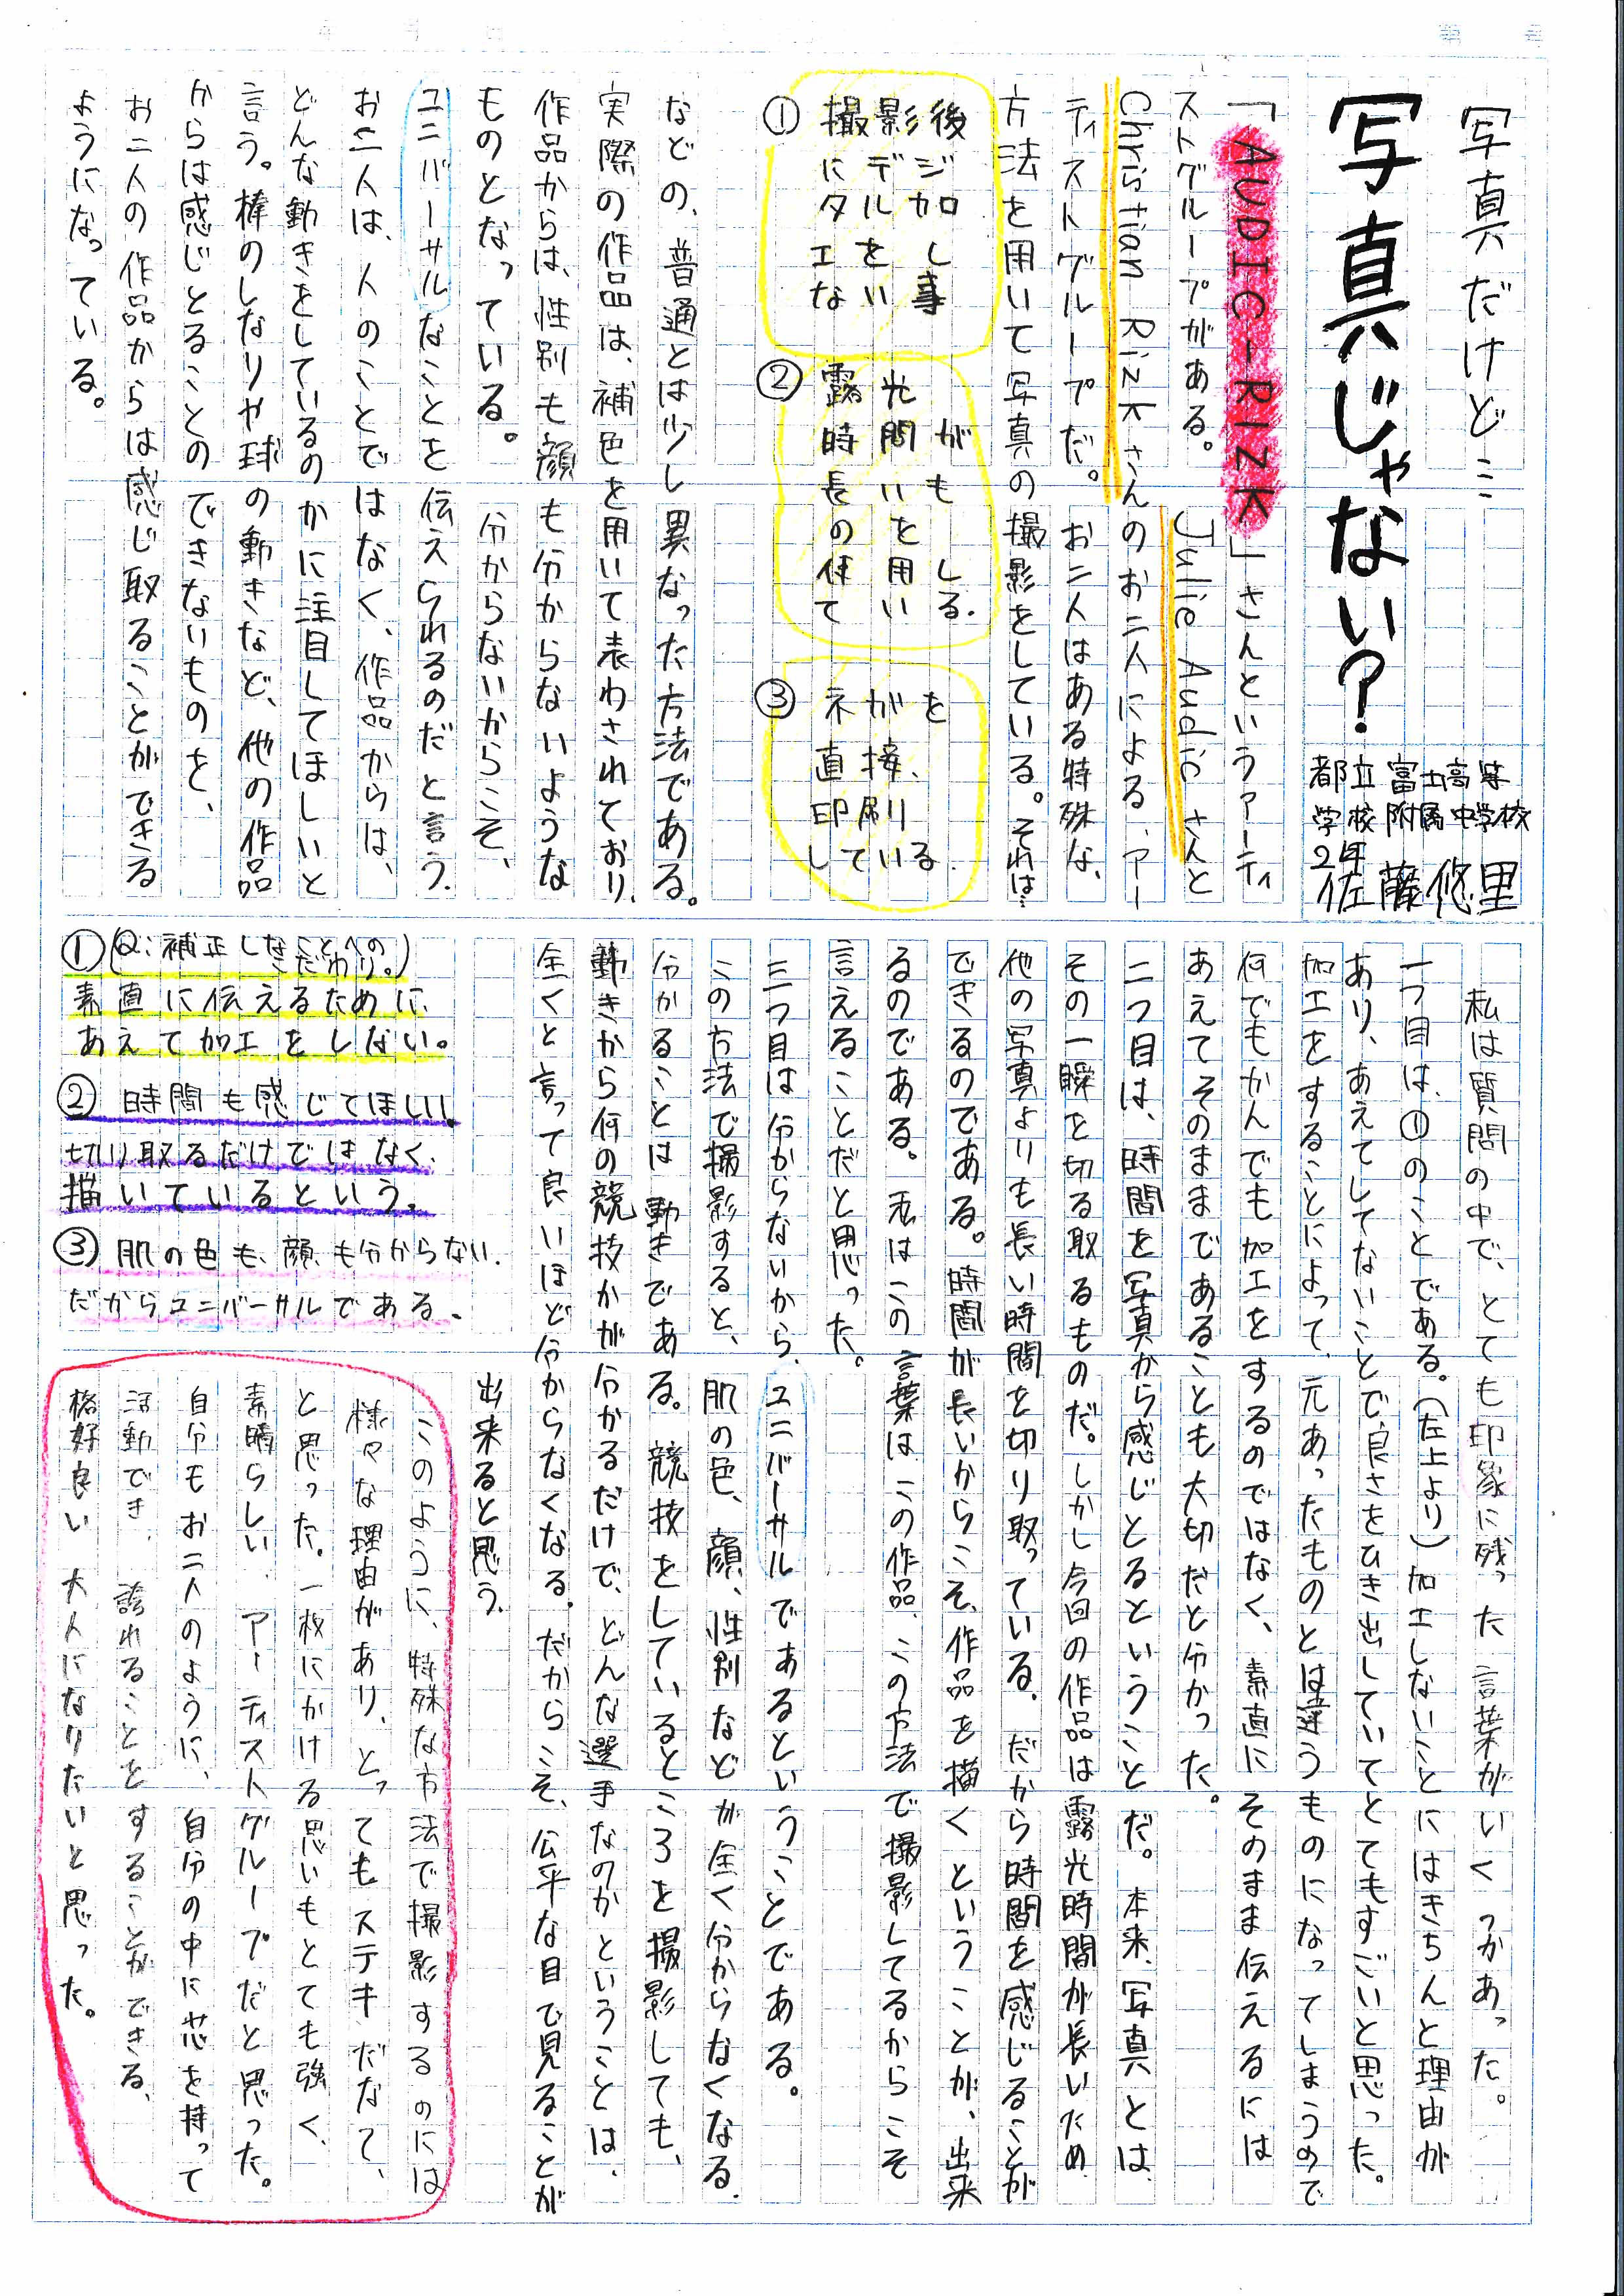 写真だけど…
写真じゃない?
都立富士高等
学校附属中学校
2年
佐藤悠里
「AUDIC-RIZK」さんというアーティ
ストグループがある。Julie Audicさんと
Christian Rizkさんのお二人による、アー
ティストグループだ。お二人はある特殊な、
方法を用いて写真の撮影をしている。それは…
①
撮影後
にデジ
タル加
工をし
ない事
な
②
露光
時間が
長いも
のを用
いてる
③
ネガを
直接、
印刷
している
などの、普通とは少し異なった方法である。
実際の作品は、補色を用いて表わされており、
作品からは、性別も顔も分からないような
ものとなっている。分からないからこそ、
ユニバーサルなことを伝えられるのだと言う。
お二人は、人のことではなく、作品からは、
どんな動きをしているのかに注目してほしいと
言う。棒のしなりや球の動きなど、他の作品
からは感じとることのできないものを、
お二人の作品からは感じ取ることができる
ようになっている。
私は質問の中で、とても印象に残った言葉がいくつかあった。
一つ目は、①のことである。(左上より)加工しないことにはきちんと理由が
あり、あえてしてないことで良さをひき出していてとてもすごいと思った。
加工をすることによって、元あったものとは違うものになってしまうので
何でもかんでも加工をするのではなく、素直にそのまま伝えるには
あえてそのままであることも大切だと分かった。
二つ目は、時間を写真から感じとるということだ。本来、写真とは、
その一瞬を切る取るものだ。しかし今回の作品は露光時間が長いため
他の写真よりも長い時間を切り取っている。だから時間を感じることが
できるのである。時間が長いからこそ、作品を描くということが、出来
るのである。私はこの言葉はこの作品、この方法で撮影してるからこそ
言えることだと思った。
三つ目は分からないから、ユニバーサルであるということである。
この方法で撮影すると、肌の色、顔、性別などが全く分からなくなる。
分かることは動きである。競技をしているところを撮影しても、
動きから何の競技かが分かるだけで、どんな選手なのかということは、
全くと言って良いほど分からなくなる。だからこそ、公平な目で見ることが
出来ると思う。
①(Q:補正しなことへのこだわり。)
素直に伝えるために、
あえて加工をしない。
②時間も感じてほしい。
切り取るだけではなく、
描いているという。
③肌の色も、顔も分からない。
だからユニバーサルである。
このように、特殊な方法で撮影するのには
様々な理由があり、とってもステキだなて、
と思った。一枚にかける思いもとても強く、
素晴らしい、アーティストグループだと思った。
自分もお二人のように、自分の中に芯を持って
活動でき、誇れることをすることができる、
格好良い大人になりたいと思った。